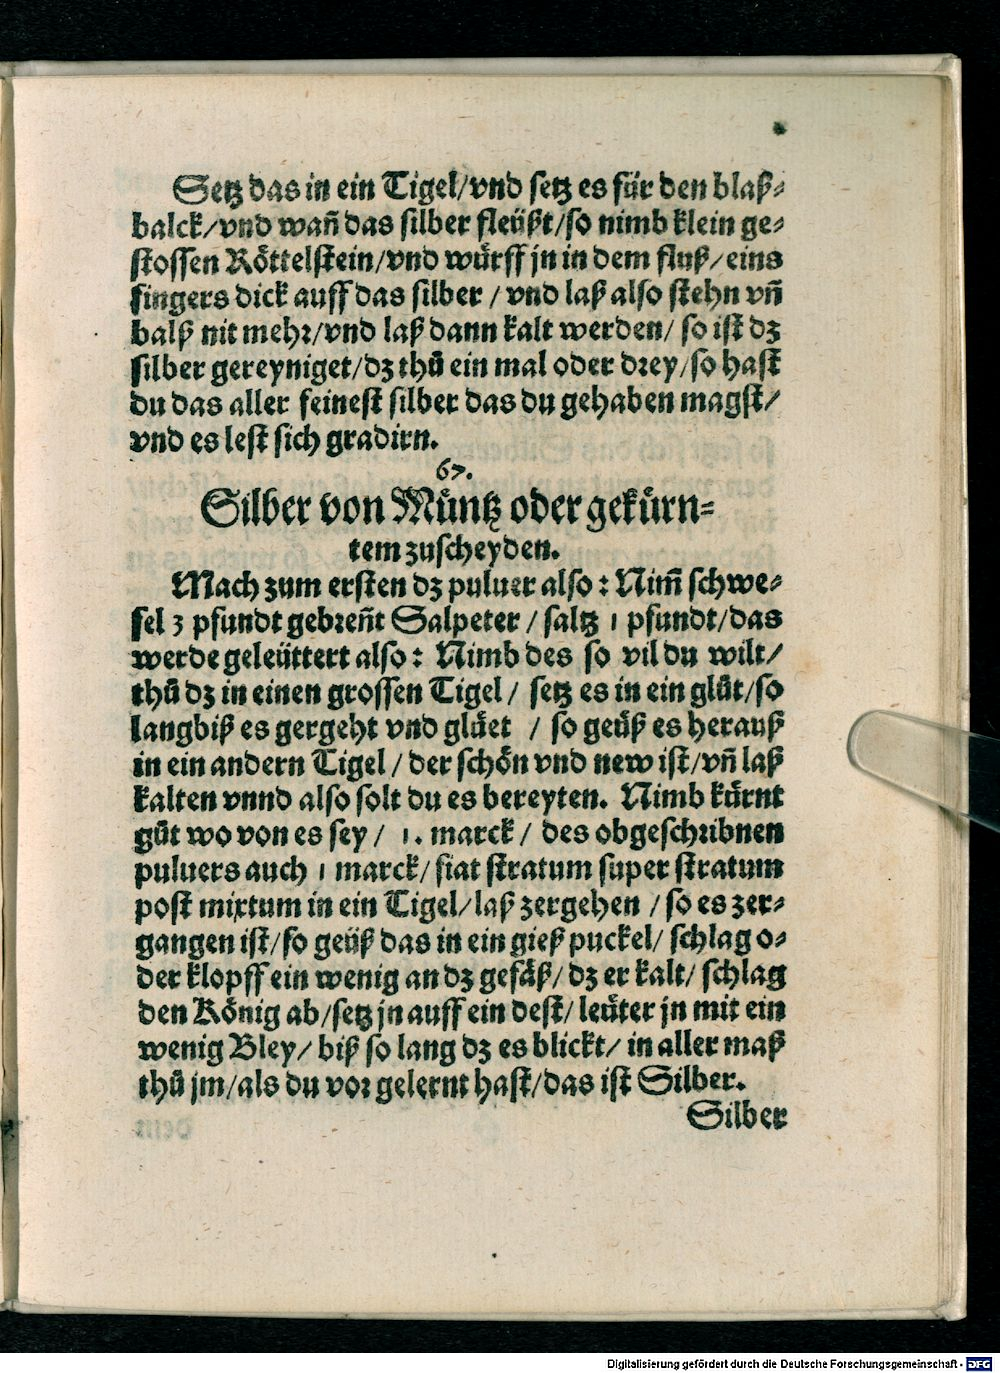 Setz das in ein Tigel/vnd setz es für den blaß-
balck/vnd wañ das silber fleüßt/so nimb klein ge-
stossen Röttelstein/vnd würff jn in dem fluß/eins
fingers dick auff das silber / vnd laß also stehn vñ
balß nit mehr/vnd laß dann kalt werden/ so ist dz
silber gereyniget/dz thů ein mal oder drey/so hast
du das aller feinest silber das du gehaben magst/
vnd es lest sich gradirn.
67.
Silber von Müntz oder gekürn-
tem zuscheyden.
Mach zum ersten dz puluer also : Nim̃ schwe-
fel 3 pfundt gebreñt Salpeter / saltz 1 pfundt/das
werde geleüttert also : Nimb des so vil du wilt/
thů dz in einen grossen Tigel / setz es in ein glůt/so
langbiß es gergeht vnd glüet / so geüß es herauß
in ein andern Tigel / der schön vnd new ist/vñ laß
kalten vnnd also solt du es bereyten. Nimb kürnt
gůt wo von es sey / 1. marck / des obgeschribnen
puluers auch 1 marck/ fiat stratum super stratum
post mixtum in ein Tigel/laß zergehen / so es zer-
gangen ist/so geüß das in ein gieß puckel/ schlag o-
der klopff ein wenig an dz gefäß/ dz er kalt/ schlag
den König ab/setz jn auff ein dest/ leüter jn mit ein
wenig Bley/ biß so lang dz es blickt/ in aller maß
thů jm/als du vor gelernt hast/das ist Silber.
Silber
Digitalisierung gefördert durch die Deutsche Forschungsgemeinschaft - DFG